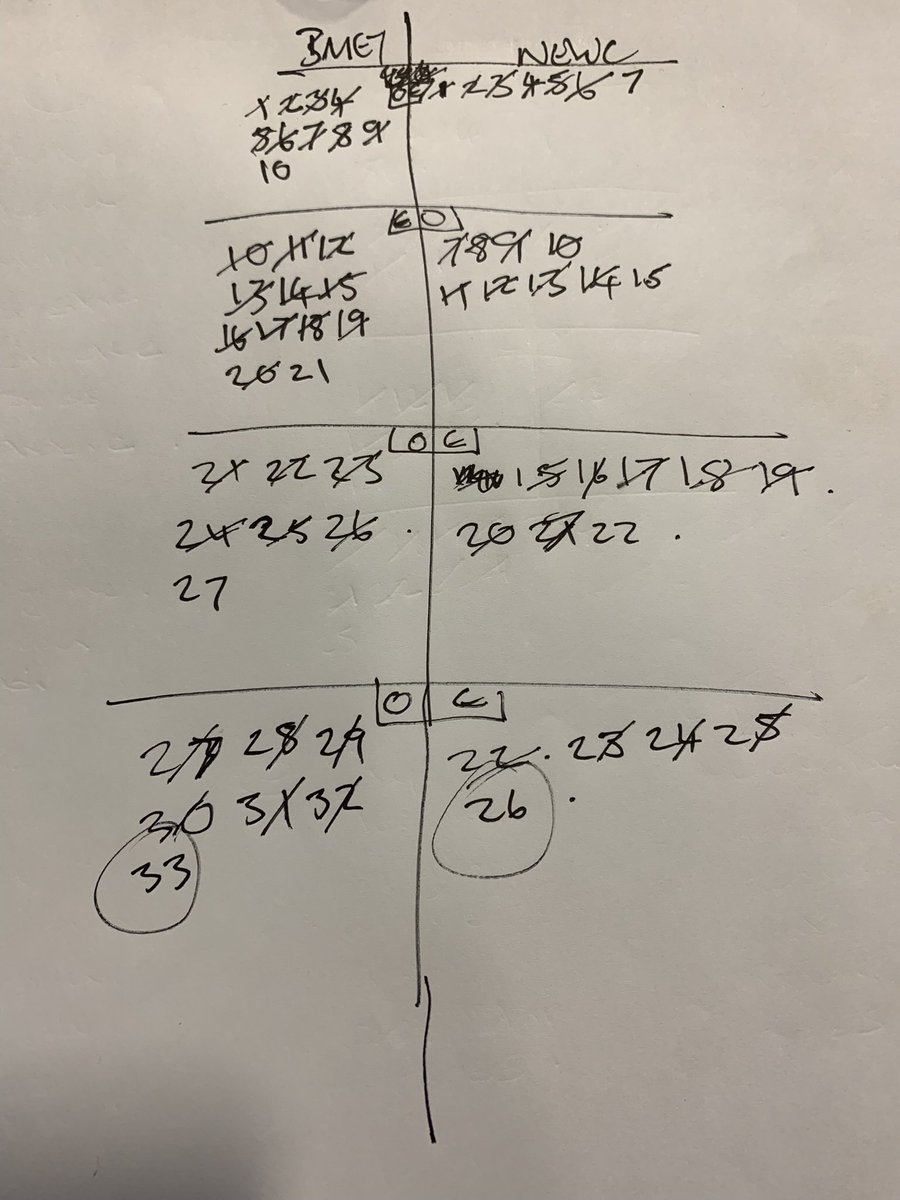 BMET NEWC
1 2 3 4 1 2 3 4 5 6 7
5 6 7 8 9
10
E O
10 11 12 7 8 9 10
13 14 15 11 12 13 14 15
16 17 18 19
20 21
O E
21 22 23 15 16 17 18 19 .
24 25 26 . 20 21 22 .
27
O E
27 28 29 22 . 23 24 25
30 31 32 26 .
33